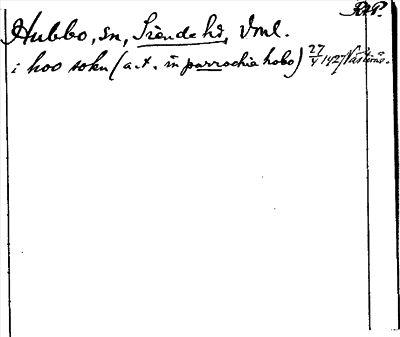 RAP.
Hubbo, sn, Siende hd, Vml.
i hoo sokn (a.t. in parrochia hobo) 27/4 1427 Västerås.